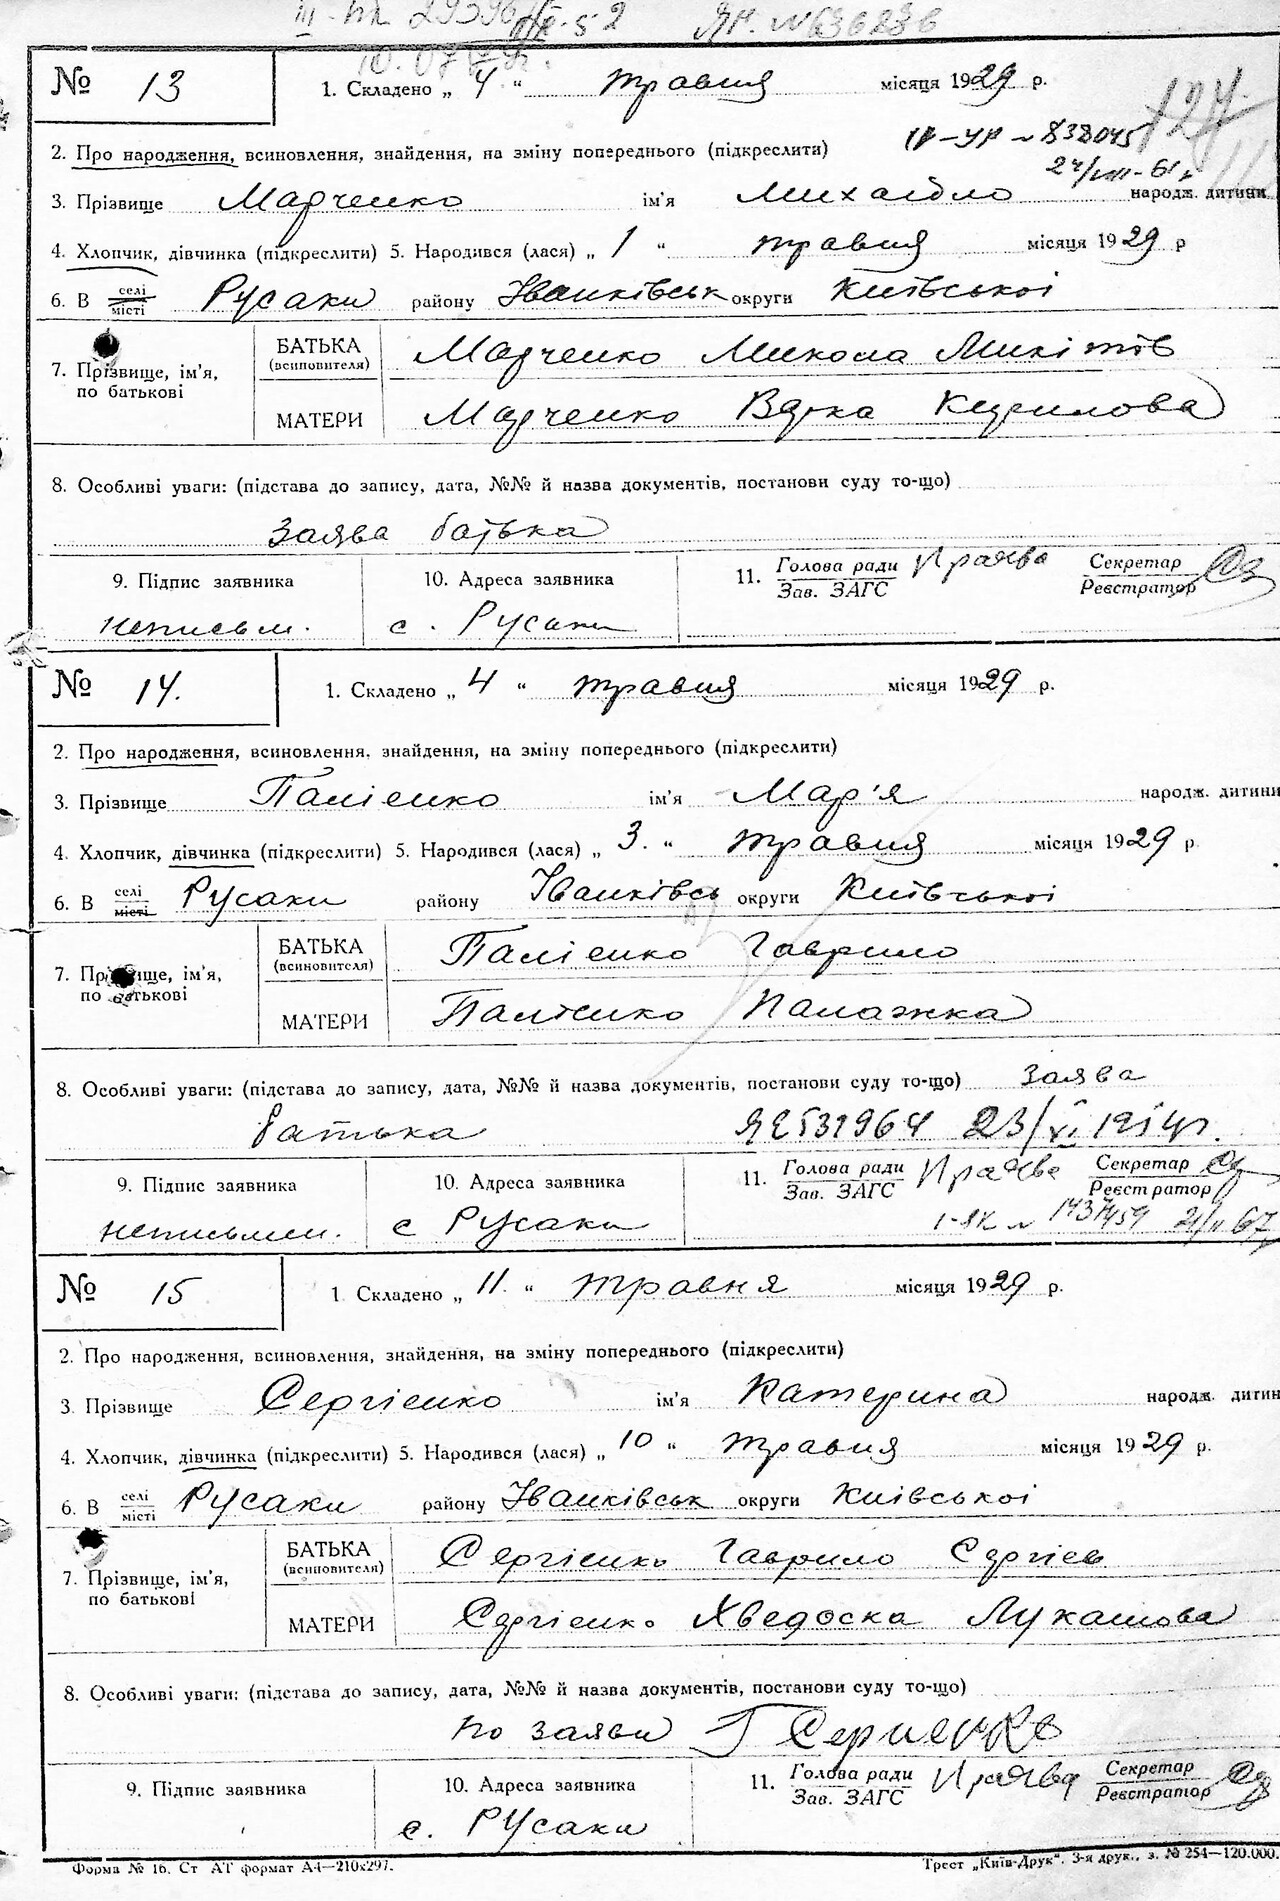 № 13
1. Складено „ 4 “ травня місяця 1929 р.
2. Про народження, всиновлення, знайдення, на зміну попереднього (підкреслити)
IV-УР № 838045
3. Прізвище Марченко ім'я Михайло народж. дитини
4. Хлопчик, дівчинка (підкреслити) 5. Народився (лася) „ 1 “ травня місяця 1929 р
6. В селі місті Русаки району Іванківськ округи Київської
7. Прізвище, ім'я, по батькові
БАТЬКА (всиновителя) Марченко Микола Микітів
МАТЕРИ Марченко Варка Кирилова
8. Особливі уваги: (підстава до запису, дата, №№ й назва документів, постанови суду то-що)
Заява батька
9. Підпис заявника 10. Адреса заявника 11. Голова ради Зав. ЗАГС Секретар Реєстратор
неписьм. с. Русаки
№ 14.
1. Складено „ 4 “ травня місяця 1929 р.
2. Про народження, всиновлення, знайдення, на зміну попереднього (підкреслити)
3. Прізвище Палієнко ім'я Мар'я народж. дитини
4. Хлопчик, дівчинка (підкреслити) 5. Народився (лася) „ 3. “ травня місяця 1929 р.
6. В селі місті Русаки району Іванківсь округи Київської
7. Прізвище, ім'я, по батькові
БАТЬКА (всиновителя) Палієнко Гаврило
МАТЕРИ Палієнко Палажка
8. Особливі уваги: (підстава до запису, дата, №№ й назва документів, постанови суду то-що) Заява
батька
9. Підпис заявника 10. Адреса заявника 11. Голова ради Зав. ЗАГС Секретар Реєстратор
неписьмен. с Русаки
№ 15
1. Складено „ 11. “ травня місяця 1929 р.
2. Про народження, всиновлення, знайдення, на зміну попереднього (підкреслити)
3. Прізвище Сергієнко ім'я Катерина народж. дитин
4. Хлопчик, дівчинка (підкреслити) 5. Народився (лася) „ 10 “ травня місяця 1929 р.
6. В селі місті Русаки району Іванківськ округи Київської
7. Прізвище, ім'я, по батькові
БАТЬКА (всиновителя) Сергієнко Гаврило Сергієв
МАТЕРИ Сергієнко Хведоска Лукашова
8. Особливі уваги: (підстава до запису, дата, №№ й назва документів, постанови суду то-що)
по заяви Г Сергиенко
9. Підпис заявника 10. Адреса заявника 11. Голова ради Зав. ЗАГС Секретар Реєстратор
с. Русаки
Форма № 16. Ст АТ формат А4—210х297. Трест „Київ-Друк“. 3-я друк., з. № 254—120.000.